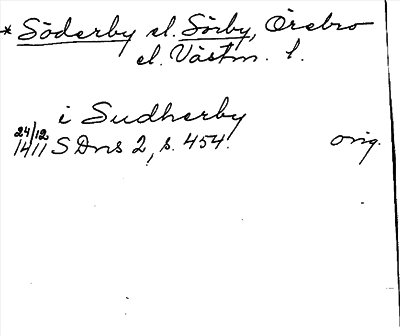 * Söderby el. Sörby, Örebro
el. Västm. l.
i Sudherby
24/12
1411 SDns 2, s. 454. orig.